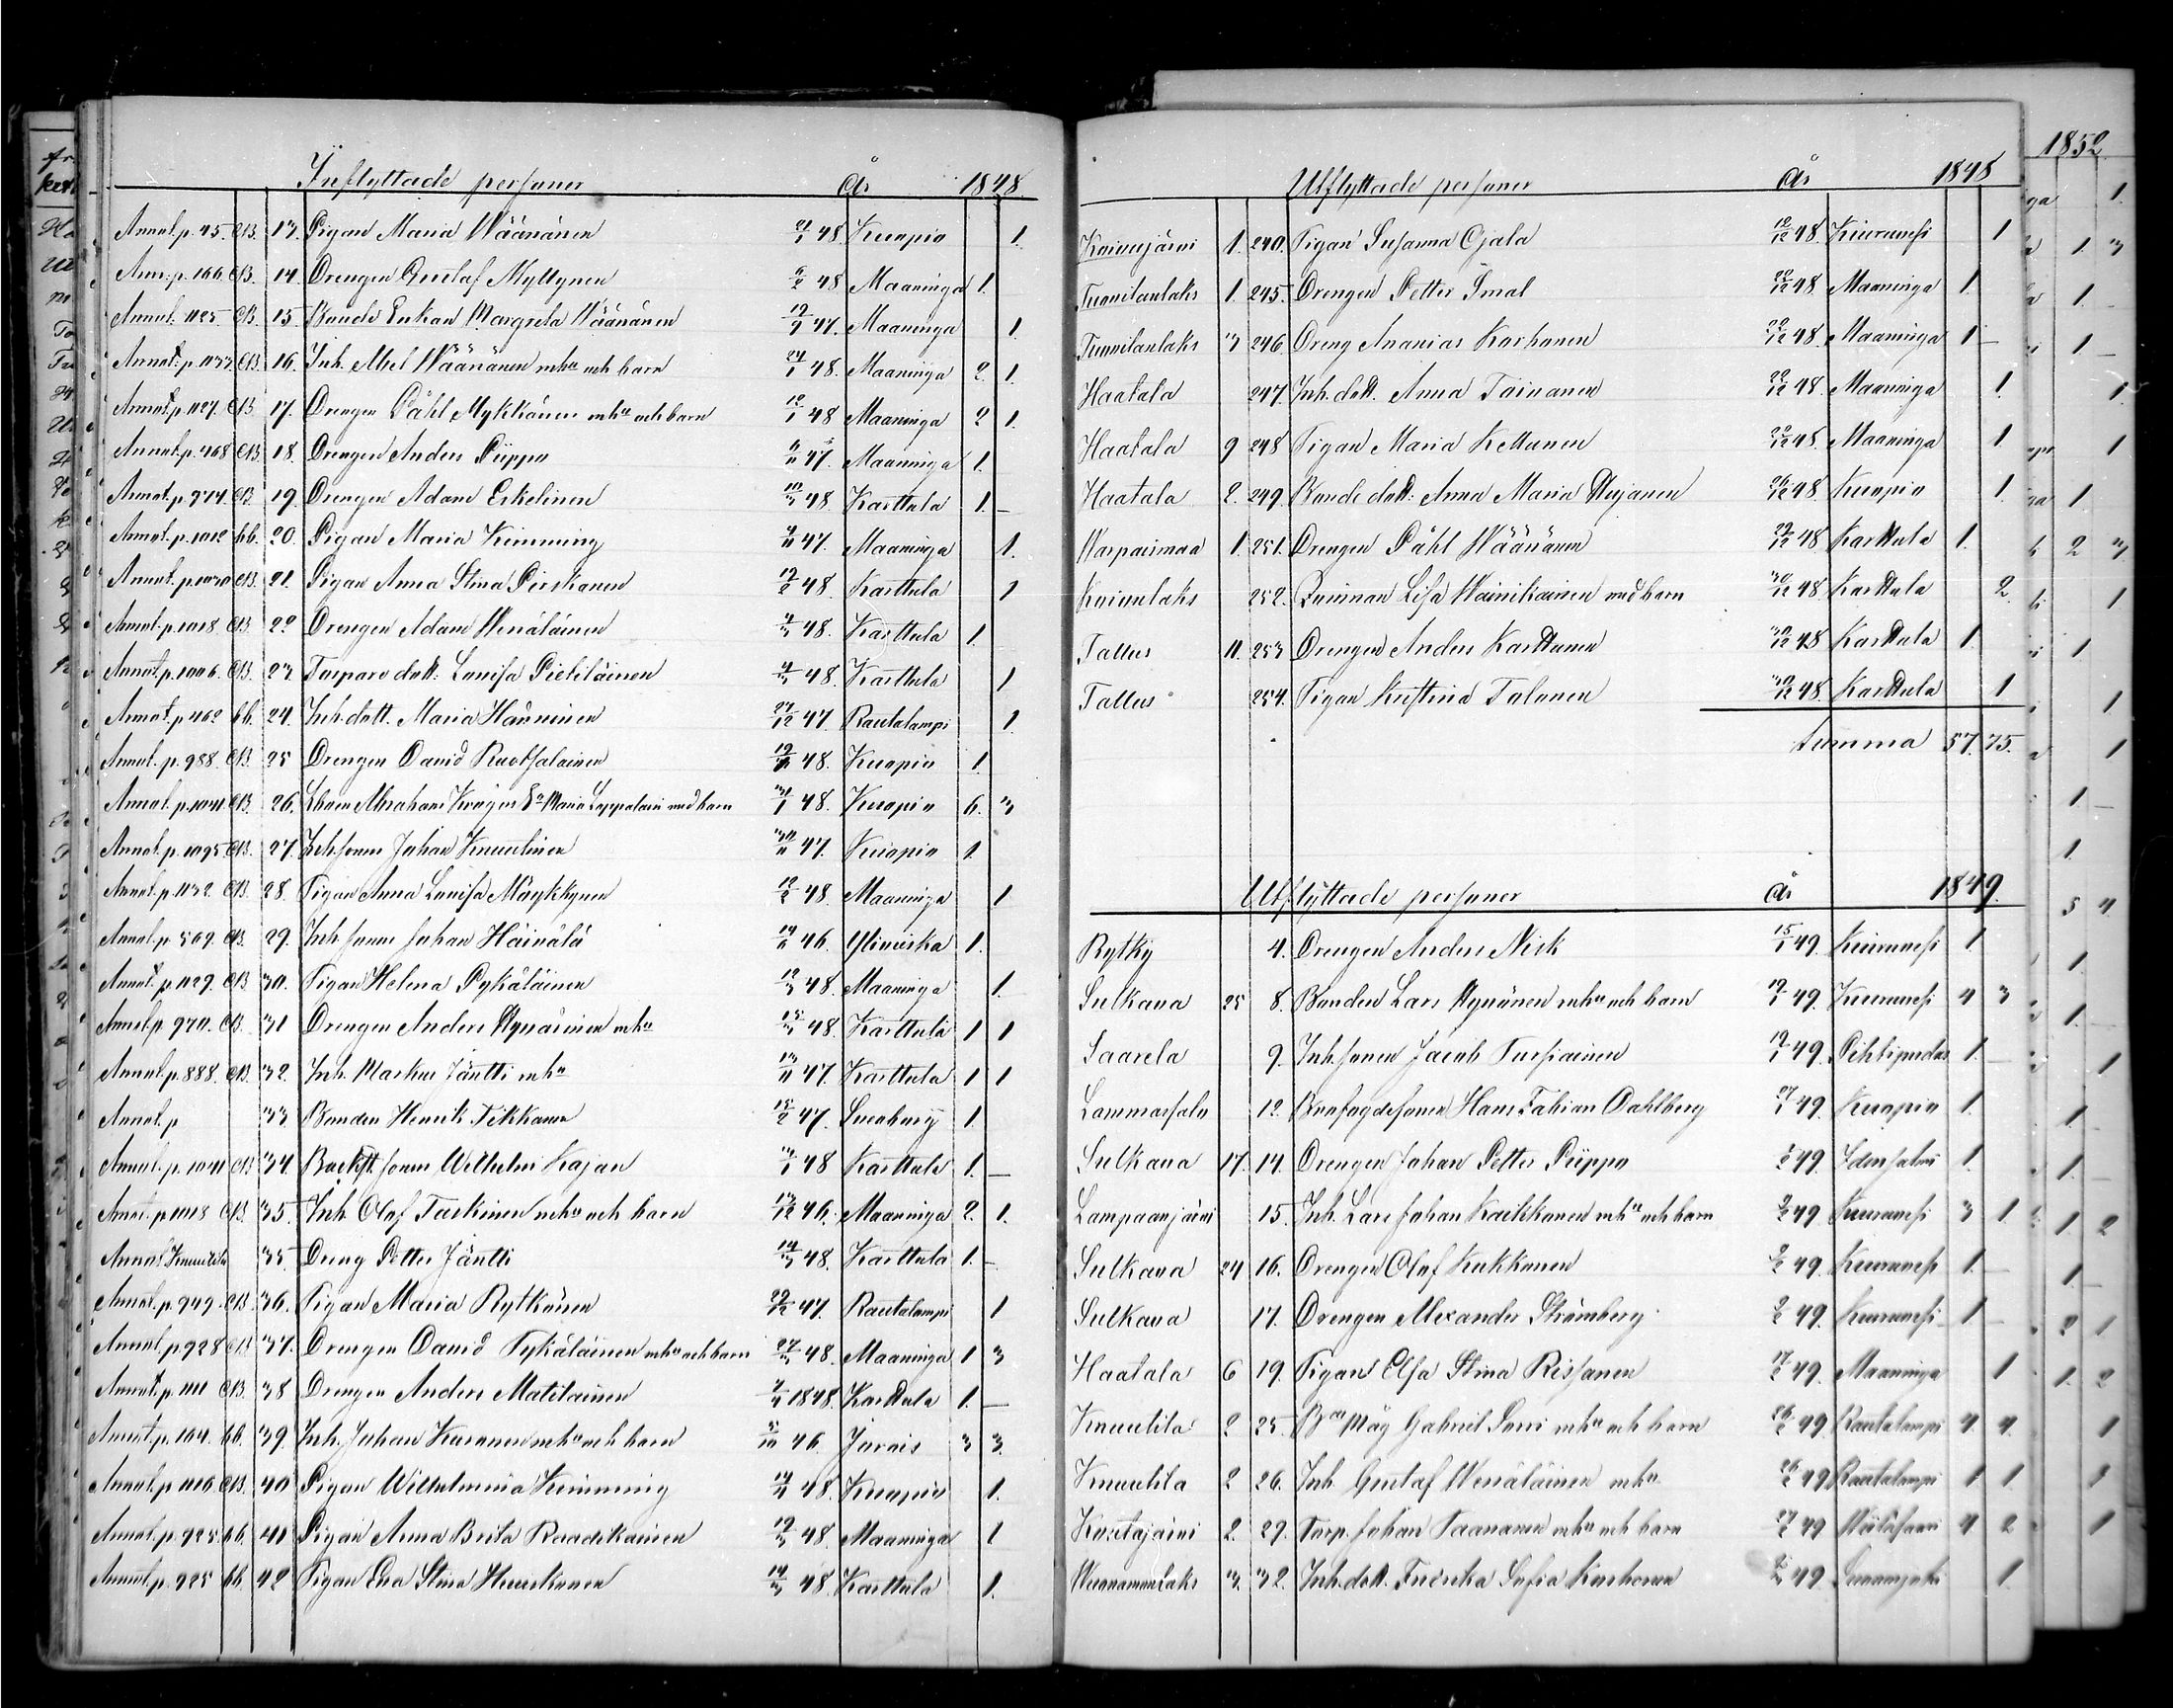 Inflyttade personer År 1848.
Annot. p. 45. CB. 13. Pigan Maria Wäänänen 21/1 48 Kuopio 1.
Ann: p. 166. CB. 14. Drengen Gustaf Myllynen 6/2 48 Maaninga 1.
Annot: 1125. CB. 15. Bonde Enkan Margreta Wäänänen 19/9 47. Maaninga 1.
Annot: p. 1133. CB. 16. Inh. Abel Wäänänen mhu och barn 24/1 48. Maaninga 2. 1.
Annot. p. 1127. CB. 17. Drengen Påhl Mykkänen mhu och barn 12/1 48 Maaninga 2 1.
Annot. p. 468 CB. 18. Drengen Anders Piippo 6/11 47. Maaninga 1.
Annot. p. 974. CB. 19. Drengen Adam Eskelinen 10/3 48. Karttula 1. –
Annot. p. 1012 bb. 20. Pigan Maria Kimming 4/11 47. Maaninga 1.
Annot. p. 1030 CB. 21. Pigan Anna Stina Pirskanen 19/2 48. Karttula 1
Annot. p. 1018. CB. 22 Drengen Adam Wenäläinen 4/3 48. Karttula 1.
Annot. p. 1006. CB. 23 Torpare dott: Lovisa Pietiläinen 4/3 48. Karttula 1
Annot. p. 462 bb. 24. Inh. dott. Maria Hänninen 27/12 47. Rautalampi 1.
Annot. p. 988. CB. 25 Drengen David Ruotsalainen 48. Kuopio 1.
Annot. p. 1041. CB. 26. Abraham Kröger Maria Lappalain med barn 31/1 48. Kuopio 6. 3
Annot. p. 1095. CB. 27. Inh. sonen Johan Knuutinen 30/11 47. Kuopio 1.
Annot. p. 1132. CB. 28. Pigan Anna Lovisa Mäykkynen 12/2 48. Maaninga 1
Annot. p. 569. CB. 29. Inh. sonen Johan Häinälä 14/11 46. Yliwieska 1.
Annot. p. 1129. CB. 30. Pigan Helena Pykäläinen 12/3 48. Maaninga 1.
Annot. p. 970. CB. 31 Drengen Anders Hynäinen mhu 15/3 48. Karttula 1 1
Annot. p. 888. CB. 32. Inh. Markus Jäntti mhu 13/11 47. Karttula 1 1
Annot. p 33 Bonden Henrik Tikkanen 15/2 47. Sveaborg 1
Annot. p. 1041 CB 34. Backst. sonen Wilhelm Kajan 48 Karttula 1. –
Annot. p 1018 CB. 35. Inh. Olof Taskinen mhu och barn 13/12 46. Maaninga 2. 1.
Annot Knuutila 35. Dreng Petter Jäntti 14/3 48. Karttula 1. –
Annot. p. 949. CB. 36. Pigan Maria Rytkönen 29/12 47. Rautalampi 1
Annot. p. 928 CB 37. Drengen David Pykäläinen mhu och barn 27/3 48. Maaninga 1 3
Annot. p. 1111 CB. 38 Drengen Anders Matilainen 1848. Karttula 1. –
Annot. p. 164. bb. 39. Inh. Johan Kuronen mhu och barn 46. Jorois 3 3.
Annot. p. 1116 CB. 40 Pigan Wilhelmina Kimming 48. Kuopio 1.
Annot. p. 925. bb. 41 Pigan Anna Brita Raadikainen 19/3 48. Maaninga 1
Annot. p. 925 bb. 42 Pigan Eva Stina Huuskonen 14/3 48. Karttula 1.
Utflyttade personer År 1848
Koivujärvi 1. 240. Pigan Susanna Ojala 12/12 48. Kiuruvesi 1
Tuovilanlaks 1. 245. Drengen Petter Smal 22/12 48. Maaninga 1.
Tuovilanlaks 3 246. Dreng Ananias Korhonen 22/12 48. Maaninga 1 –
Haatala 247. Inh. dott. Anna Toivanen 22/12 48. Maaninga 1.
Haatala 9 248 Pigan Maria Kettunen 22/12 48. Maaninga 1
Haatala 2. 249. Bonde dott: Anna Maria Hujanen 26/12 48 Kuopio 1.
Warpaismaa 1. 251. Drengen Påhl Wäänänen 29/12 48 Karttula 1.
Koivulaks 252. Qvinnan Lisa Wainikainen med barn 30/12 48. Karttula 2.
Tallus 11. 253 Drengen Anders Karttunen 30/12 48 Karttula 1.
Tallus 254. Pigan Kristina Tolonen 30/12 48. Karttula 1
Summa 57. 75.
Utflyttade personer År 1849.
Rytky 4. Drengen Anders Nisk 15/1 49. Kiuruvesi 1
Sulkava 25 8. Bonden Lars Hynönen mhu och barn 19/1 49. Kiuruvesi 4 3
Saarela 9. Inh. sonen Jacob Tursiainen 19/1 49. Pihtipudas 1. –
Lammassalo 12. Bonfogdesonen Hans Fabian Dahlberg 27/1 49. Kuopio 1.
Sulkava 17. 14. Drengen Johan Petter Piippo 49. Idensalmi 1.
Lampaanjärvi 15. Inh. Lars Johan Kaikkonen mhu och barn 49 Kiuruvesi 3 1.
Sulkava 24 16. Drengen Olof Kukkonen 49. Kiuruvesi 1. –
Sulkava 17. Drengen Alexander Strömberg 49. Kiuruvesi 1 –
Haatala 6 19. Pigan Elsa Stina Rissanen 17/2 49. Maaninga 1
Knuutila 2 25. Gabriel mhu och barn 26/2 49 Rautalampi 4 4.
Knuutila 2 26. Inh. Gustaf Wenäläinen mhu 26/2 49 Rautalampi 1 1.
Koutajärvi 2. 29. Torp. Johan Taavanen mhu och barn 27/2 49 Wiitasaari 4 2
Wuonamonlaks 3. 32. Inh. dott. Fredrika Sofia Korhonen 49 1.
1852